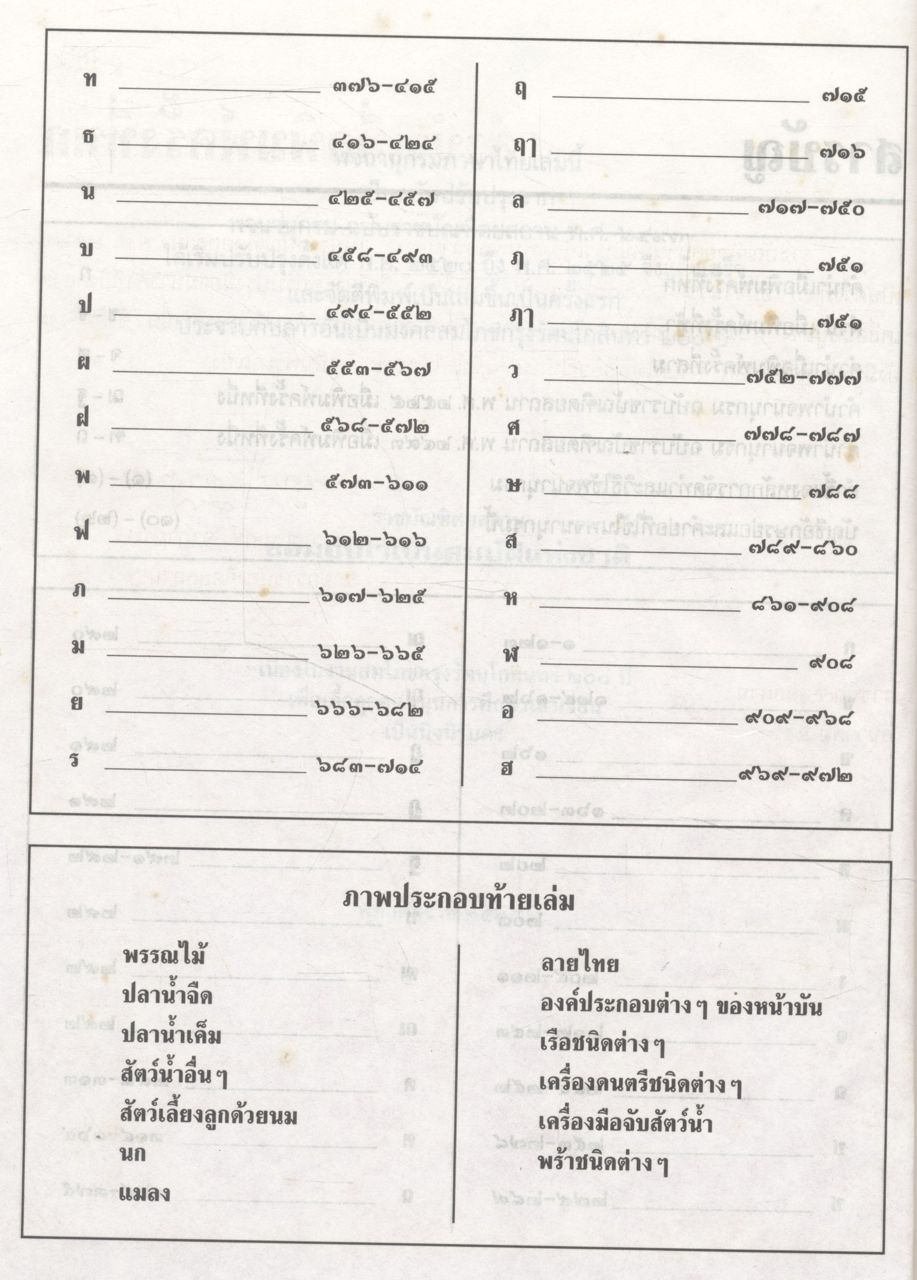 ท ๓๗๖-๔๑๕
ธ ๔๑๖-๔๒๔
น ๔๒๕-๔๕๗
บ ๔๕๘-๔๙๓
ป ๔๙๔-๕๕๒
ผ ๕๕๓-๕๖๗
ฝ ๕๖๘-๕๗๒
พ ๕๗๓-๖๑๑
ฟ ๖๑๒-๖๑๖
ภ ๖๑๗-๖๒๕
ม ๖๒๖-๖๖๕
ย ๖๖๖-๖๘๒
ร ๖๘๓-๗๑๔
ฤ ๗๑๕
ฤๅ ๗๑๖
ล ๗๑๗-๗๕๐
ฦ ๗๕๑
ฦๅ ๗๕๑
ว ๗๕๒-๗๗๗
ศ ๗๗๘-๗๘๗
ษ ๗๘๘
ส ๗๘๙-๘๖๐
ห ๘๖๑-๙๐๘
ฬ ๙๐๘
อ ๙๐๙-๙๖๘
ฮ ๙๖๙-๙๗๒
ภาพประกอบท้ายเล่ม
พรรณไม้
ปลาน้ำจืด
ปลาน้ำเค็ม
สัตว์น้ำอื่นๆ
สัตว์เลี้ยงลูกด้วยนม
นก
แมลง
ลายไทย
องค์ประกอบต่างๆ ของหน้าบัน
เรือชนิดต่างๆ
เครื่องดนตรีชนิดต่างๆ
เครื่องมือจับสัตว์น้ำ
พร้าชนิดต่างๆ